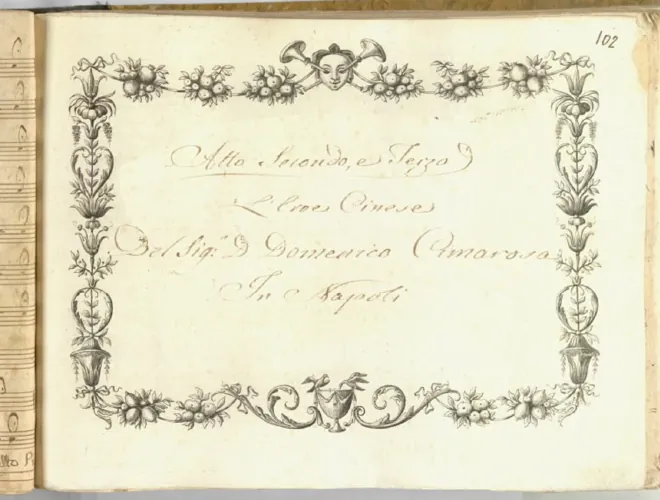 102
Atto Secondo, e Terzo
L'Eroe Cinese
Del Sig.r D Domenico Cimarosa
In Napoli